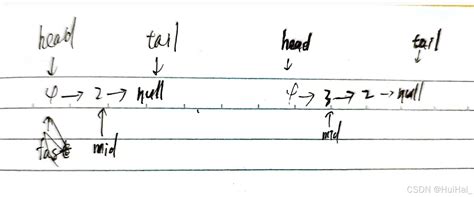 head tail head tail
↓ ↓ ↓ ↓
4 → 2 → null 4 → 3 → 2 → null
mid mid
CSDN @HuiHai_